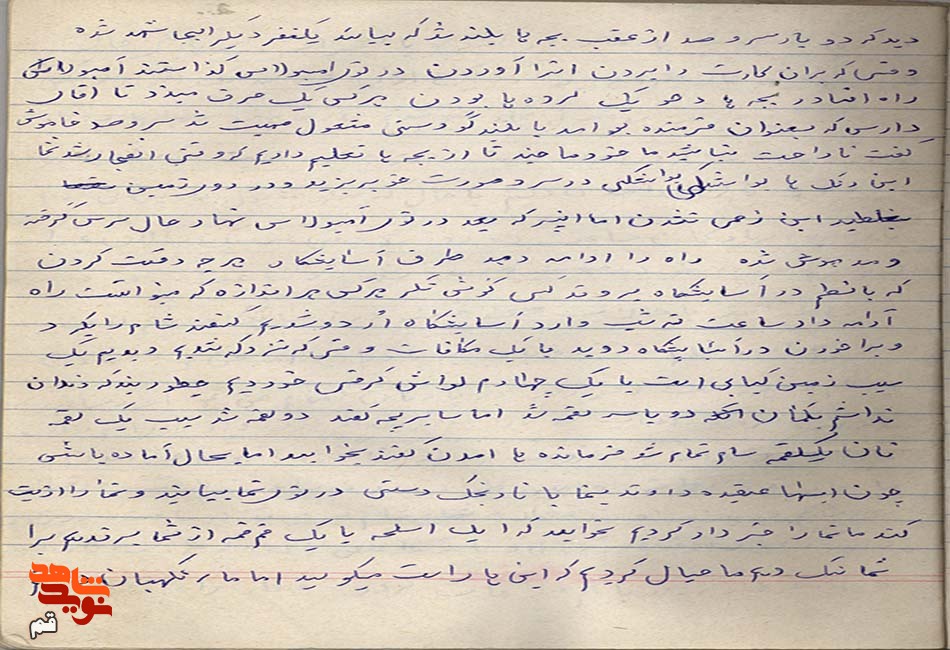 دید که دو یا رسر و صدا از عقب بچه ها بلند شد که بیائید یکنفر دیگر اینجا شهید شده
وقتی که برای کارت را بردن انرا آوردن در توی امبولانس گذاستند آمبولانس
راه افتاد بچه ها دهو یک گروه ها بودن هر کس یک حرف میزد تا اقای
که بعنوان فرمنده بو امد با بلند گو دستی مشغول صحبت شد سر و صدا خاموش
گفت نا راحت نباشید ما خود ما چند تا از بچه ها تعلیم دادیم که وقتی انفجار شد شما
این رنگ ها یواشکی در سر و صورت خو بریزید و در روی زمین
بغلطید این زخمی نشدن اما انهم که بعد در توی آمبولاس نهاد حال سرس گرفته
و بیهوش شده راه را ادامه دهید طرف آسایشگاه هر چه دقت کردن
که با نظم در آسایشگاه بروند کس گوش نکر هر کس هر اندازه که میتوانست راه
آدامه داد ساعت نه شب وارد آسایشگاه اردو شدیم گفتند شام را بگیرد
و برا خوردن در آسایشگاه دوید با یک مکافات وقتی که نزد که شدیم دیویم یک
سیب زمین کبابی است با یک چهارم لواش گرفتی خوردیم چطور بند که دندان
نداشتم بکمان دو یا سه لقمه شد اما سایر بچه گفتند دو لقمه شد سیب یک لقمه
نان یک لقمه شام تمام شو فرمانده ها امدن گفتند بخوابید اما بحال آماده باشی
چون اینها عقیده دارند شما با نارنجک دستی در توی شما بیایند و شما را اذیت
کند ما شما را خبر دار کردیم نخوابید که ایک اسلحه یا یک قمقمه از شما برندیم برا
شما ننگ دیم ما خیال کردیم که این ها راست میگویند اما مار نگهبان
نوید شاهد
قم